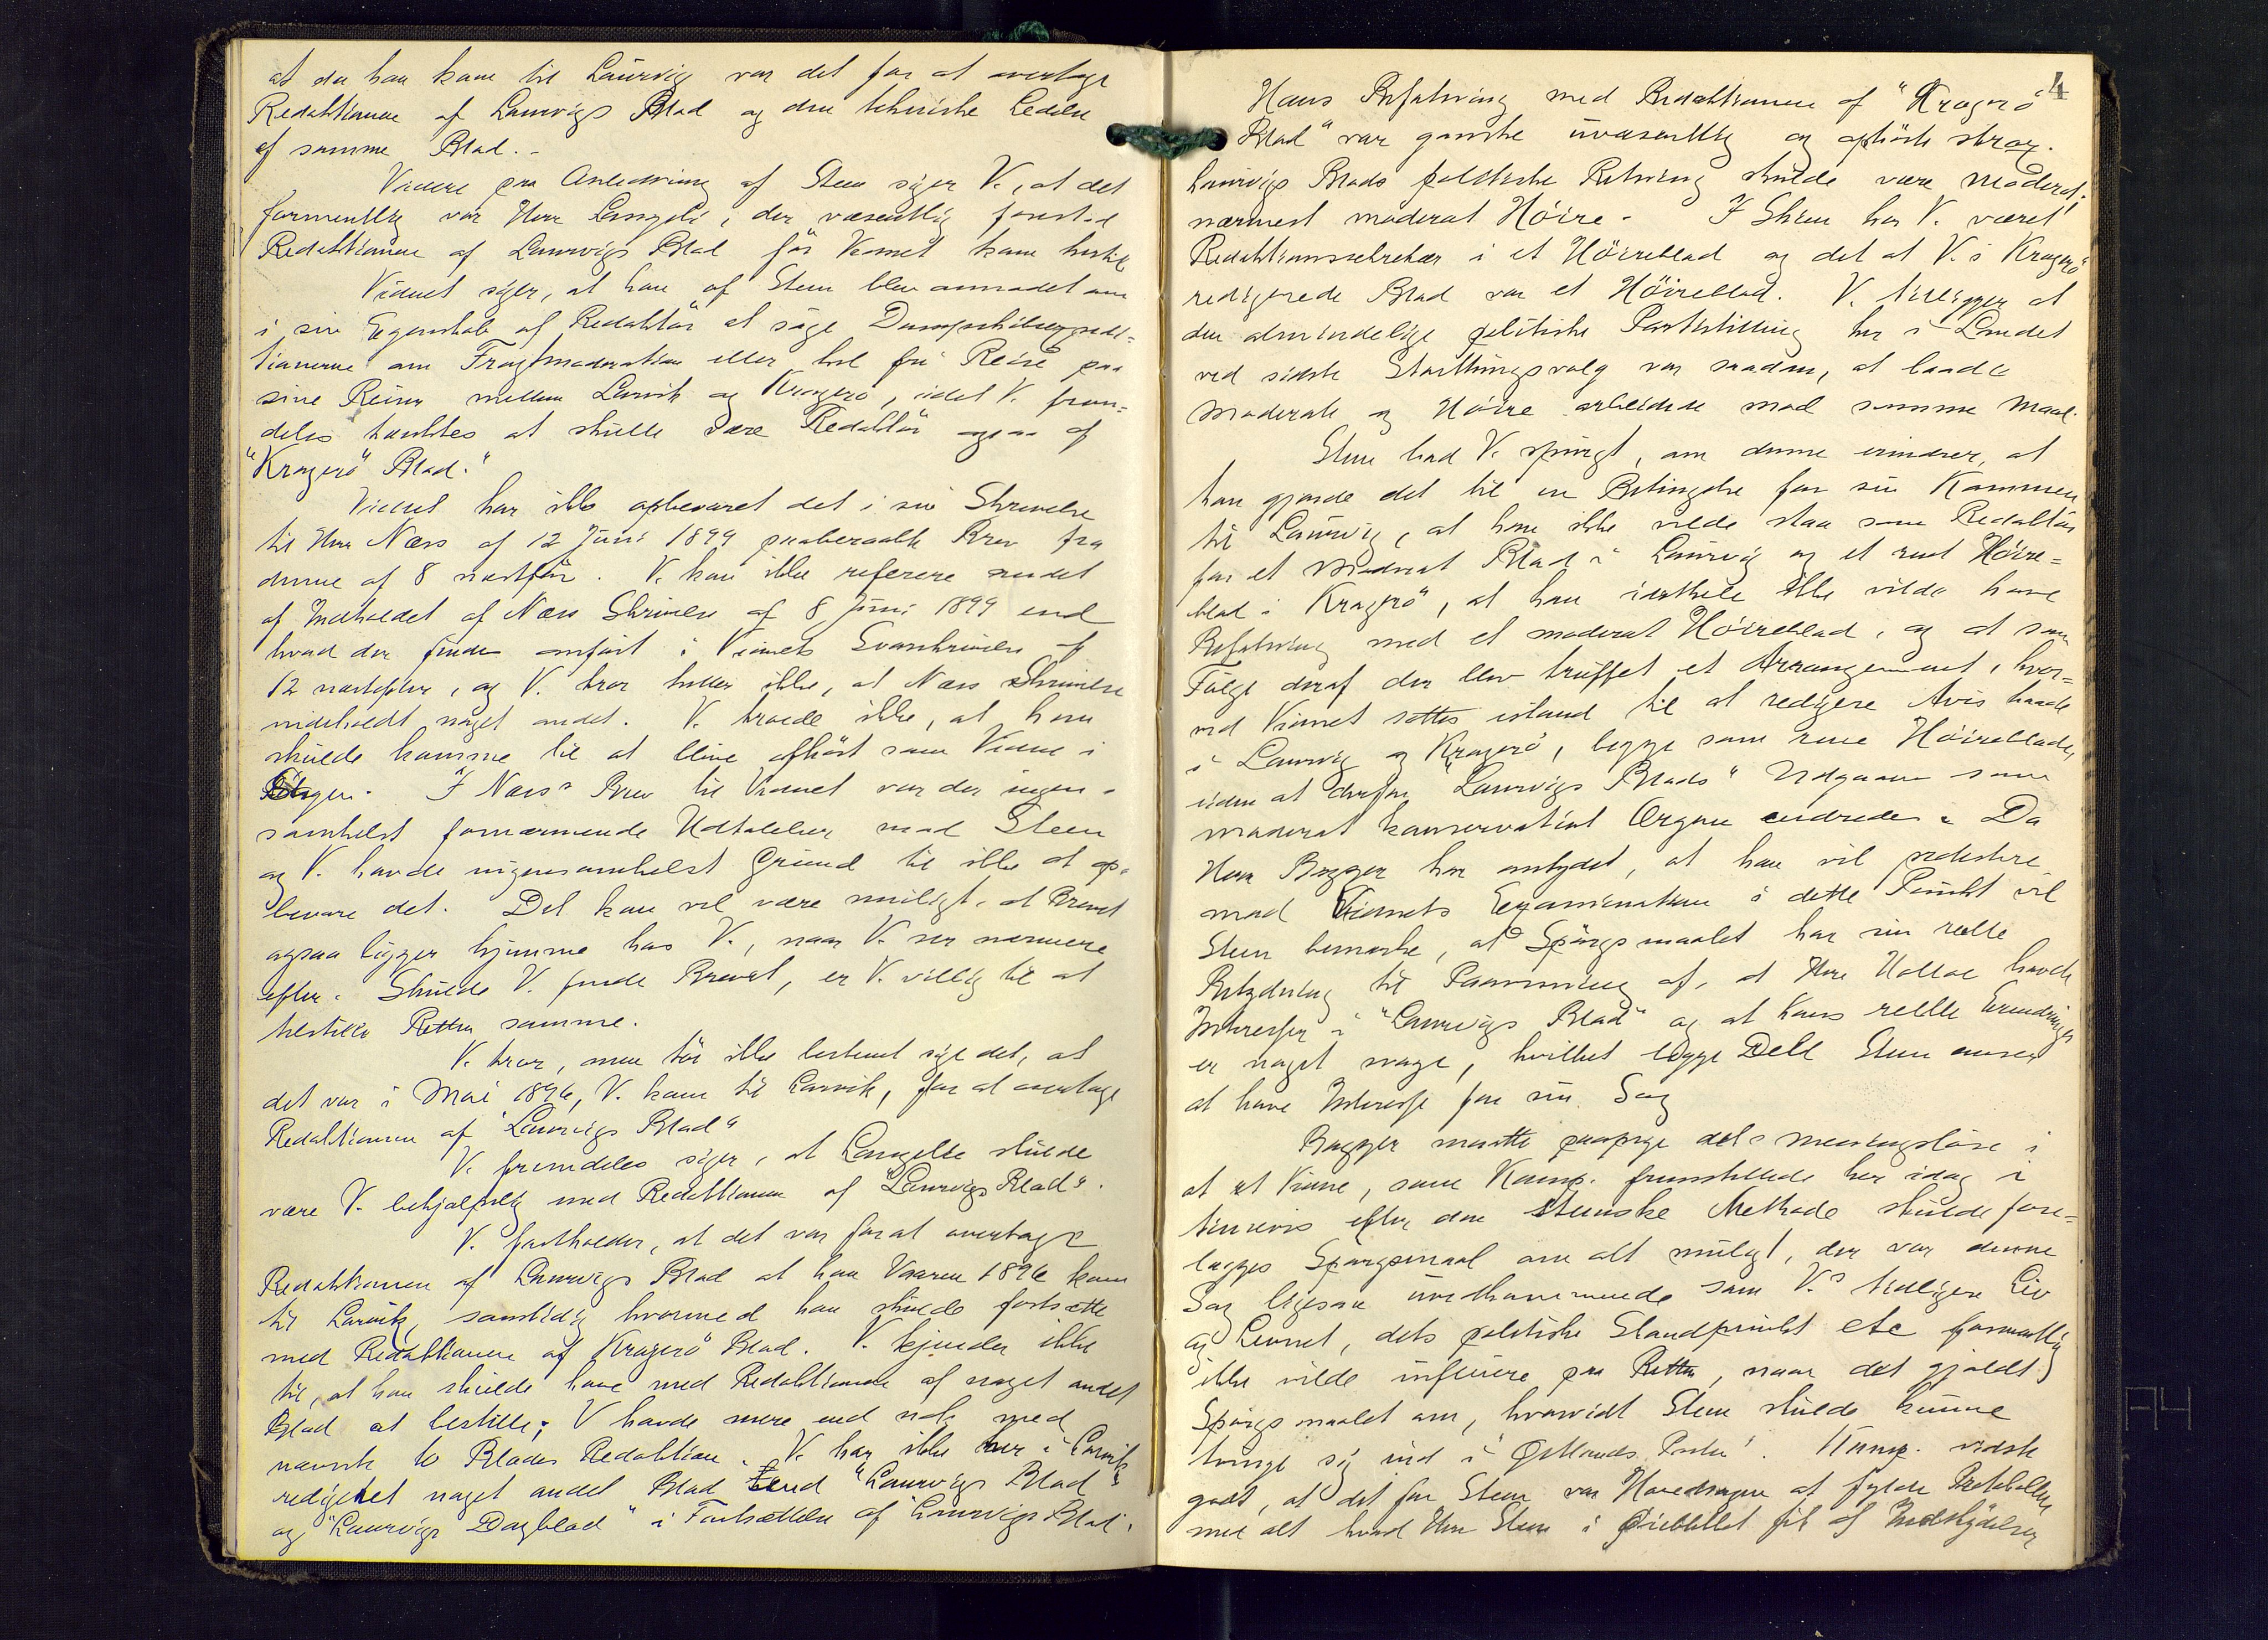 at da han kom til Laurvig var det for at overtage
Redaktionen af Laurvigs Blad og den tekniske Ledelse
af samme Blad. -
Videre paa Anledning af Steen siger V., at det
formentlig var Herr Langeli, der væsentlig forestod
Redaktionen af Laurvigs Blad før Vidnet kom hertil
Vidnet siger, at han af Steen blev anmodet om
i sin Egenskab af Redaktör at söge Dampskibsexpedi=
tionerne om Fragtmoderation eller hel fri Reise paa
sine Reiser mellem Larvik og Kragerø, idet V. frem=
deles tænktes at skulle være Redaktör ogsaa af
"Kragerö Blad."
Vidnet har ikke opbevaret det i sin Skrivelse
til Herr Næss af 12 Juni 1899 paaberaabte Brev fra
denne af 8 næstfør. V. kan ikke referere andet
af Indholdet af Næss Skrivelse af 8 Juni 1899 end
hvad der findes anført i Vidnets Svarskrivelse af
12 næstefter, og V. tror heller ikke, at Næss Skrivelse
indeholdt noget andet. V. troede ikke, at han
skulde komme til at blive afhørt som Vidne i
Sagen. I Næss' Brev til Vidnet var der ingen=
somhelst fornærmende Udtalelser mod Steen
og V. havde ingensomhelst Grund til ikke at op=
bevare det. Det kan vel være muligt, at Brevet
ogsaa ligger hjemme hos V., naar V. ser nærmere
efter. Skulde V. finde Brevet, er V. villig til at
tilstille Retten samme.
V. tror, men tör ikke bestemt sige det, at
det var i Mai 1896, V. kom til Larvik, for at overtage
Redaktionen af "Laurvigs Blad"
V. fremdeles siger, at Langelie skulde
være V. behjælpelig med Redaktionen af "Laurvigs Blad".
V. fastholder, at det var for at overtage
Redaktionen af Laurvigs Blad at han Vaaren 1896 kom
til Larvik, samtidig hvormed han skulde fortsætte
med Redaktionen af Kragerö Blad. V. kjender ikke
til, at han skulde have med Redaktionen af noget andet
Blad at bestille; V havde mere end nok med
nævnte to Blades Redaktion. V. har ikke her i Larvik
redigeret noget andet Blad end "Laurvigs Blad"
og "Laurvigs Dagblad" i Fortsættelse af Laurvigs Blad.
4
Hans Befatning med Redaktionen af "Kragerö
Blad" var ganske uvæsentlig og ophörte strax.
Laurvigs Blads politiske Retning skulde være moderat,
nærmest moderat Höire - I Skien har V. været
Redaktionssekretær i et Höireblad og det af V. i Kragerö
redigerede Blad var et Höireblad. V. tillægger at
den almindelige politiske Partistilling her i Landet
ved sidste Storthingsvalg var saadan, at baade
Moderate og Höire arbeidede mod samme Maal.
Steen bad V. spurgt, om denne erindrer, at
han gjorde det til en Betingelse for sin Kommen
til Laurvig, at han ikke vilde staa som Redaktör
for et Moderat Blad i Laurvig og et rent Höire=
blad i Kragerö, at han ikke vilde have
Befatning med et moderat Höireblad, og at som
Fölge deraf der blev truffet et Arrangement, hvor=
ved Vidnet sattes istand til at redigere Avis baade
i Laurvig og Kragerö, begge som rene Höireblade,
uden at derfor "Laurvigs Blads" Udgaaen som
moderat konservativt Organ endredes. Da
Herr Bagger har antydet, at han vil protestere
mod Vidnets Examination i dette Punkt vil
Steen bemærke, at Spörgsmaalet har sin rette
Betydning til Paavisning af, at Herr Holtoe havde
Interesser i "Laurvigs Blad" og at hans reelle Erindringer
er noget svage, hvilket begge Dele Steen anser
at have Interesse for sin Sag
Bagger maatte paapege det meningslöse i
at et Vidne, som Kamp. fremstillede her idag i
timevis efter den Steenske Methode skulde fore=
lægges Spörgsmaal om alt muligt, der var denne
Sag ligesaa uvedkommende som V.s tidligere Liv
og Levnet, dets politiske Standpunkt etc formentlig
ikke vilde influere paa Retten, naar det gjaldt
Spörgsmaalet om, hvorvidt Steen skulde kunne
trænge sig ind i "Østlands Posten". Kamp. vidste
godt, at det for Steen var Hovedsagen at fylde Protokollen
med alt hvad Herr Steen i Øieblikket fik af Indskydelser